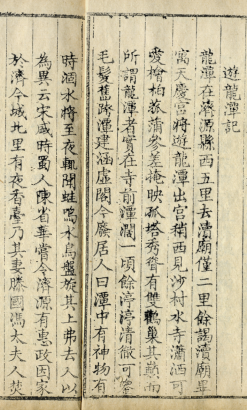 遊龍潭記
龍潭在濟源縣西五里去瀆廟僅二里餘謁瀆廟畢
寓天慶宮將遊龍潭出宮稍西見沙村水寺瀟洒可
愛檜柏菰蒲參差掩映孤塔秀聳有雙鸛巢其巔而
所謂龍潭者實在寺前潭濶一頃餘渟渟清徹可窺
毛髮舊跨潭建涵虛閣今廢居人曰潭中有神物有
時涸水將至夜輒聞蛙鳴水鳥盤旋其上弗去人以
為異云宋咸時蜀人陳省華嘗令濟源有惠政因家
於濟今城北里有夜香臺乃其妻滕國馮太夫人焚